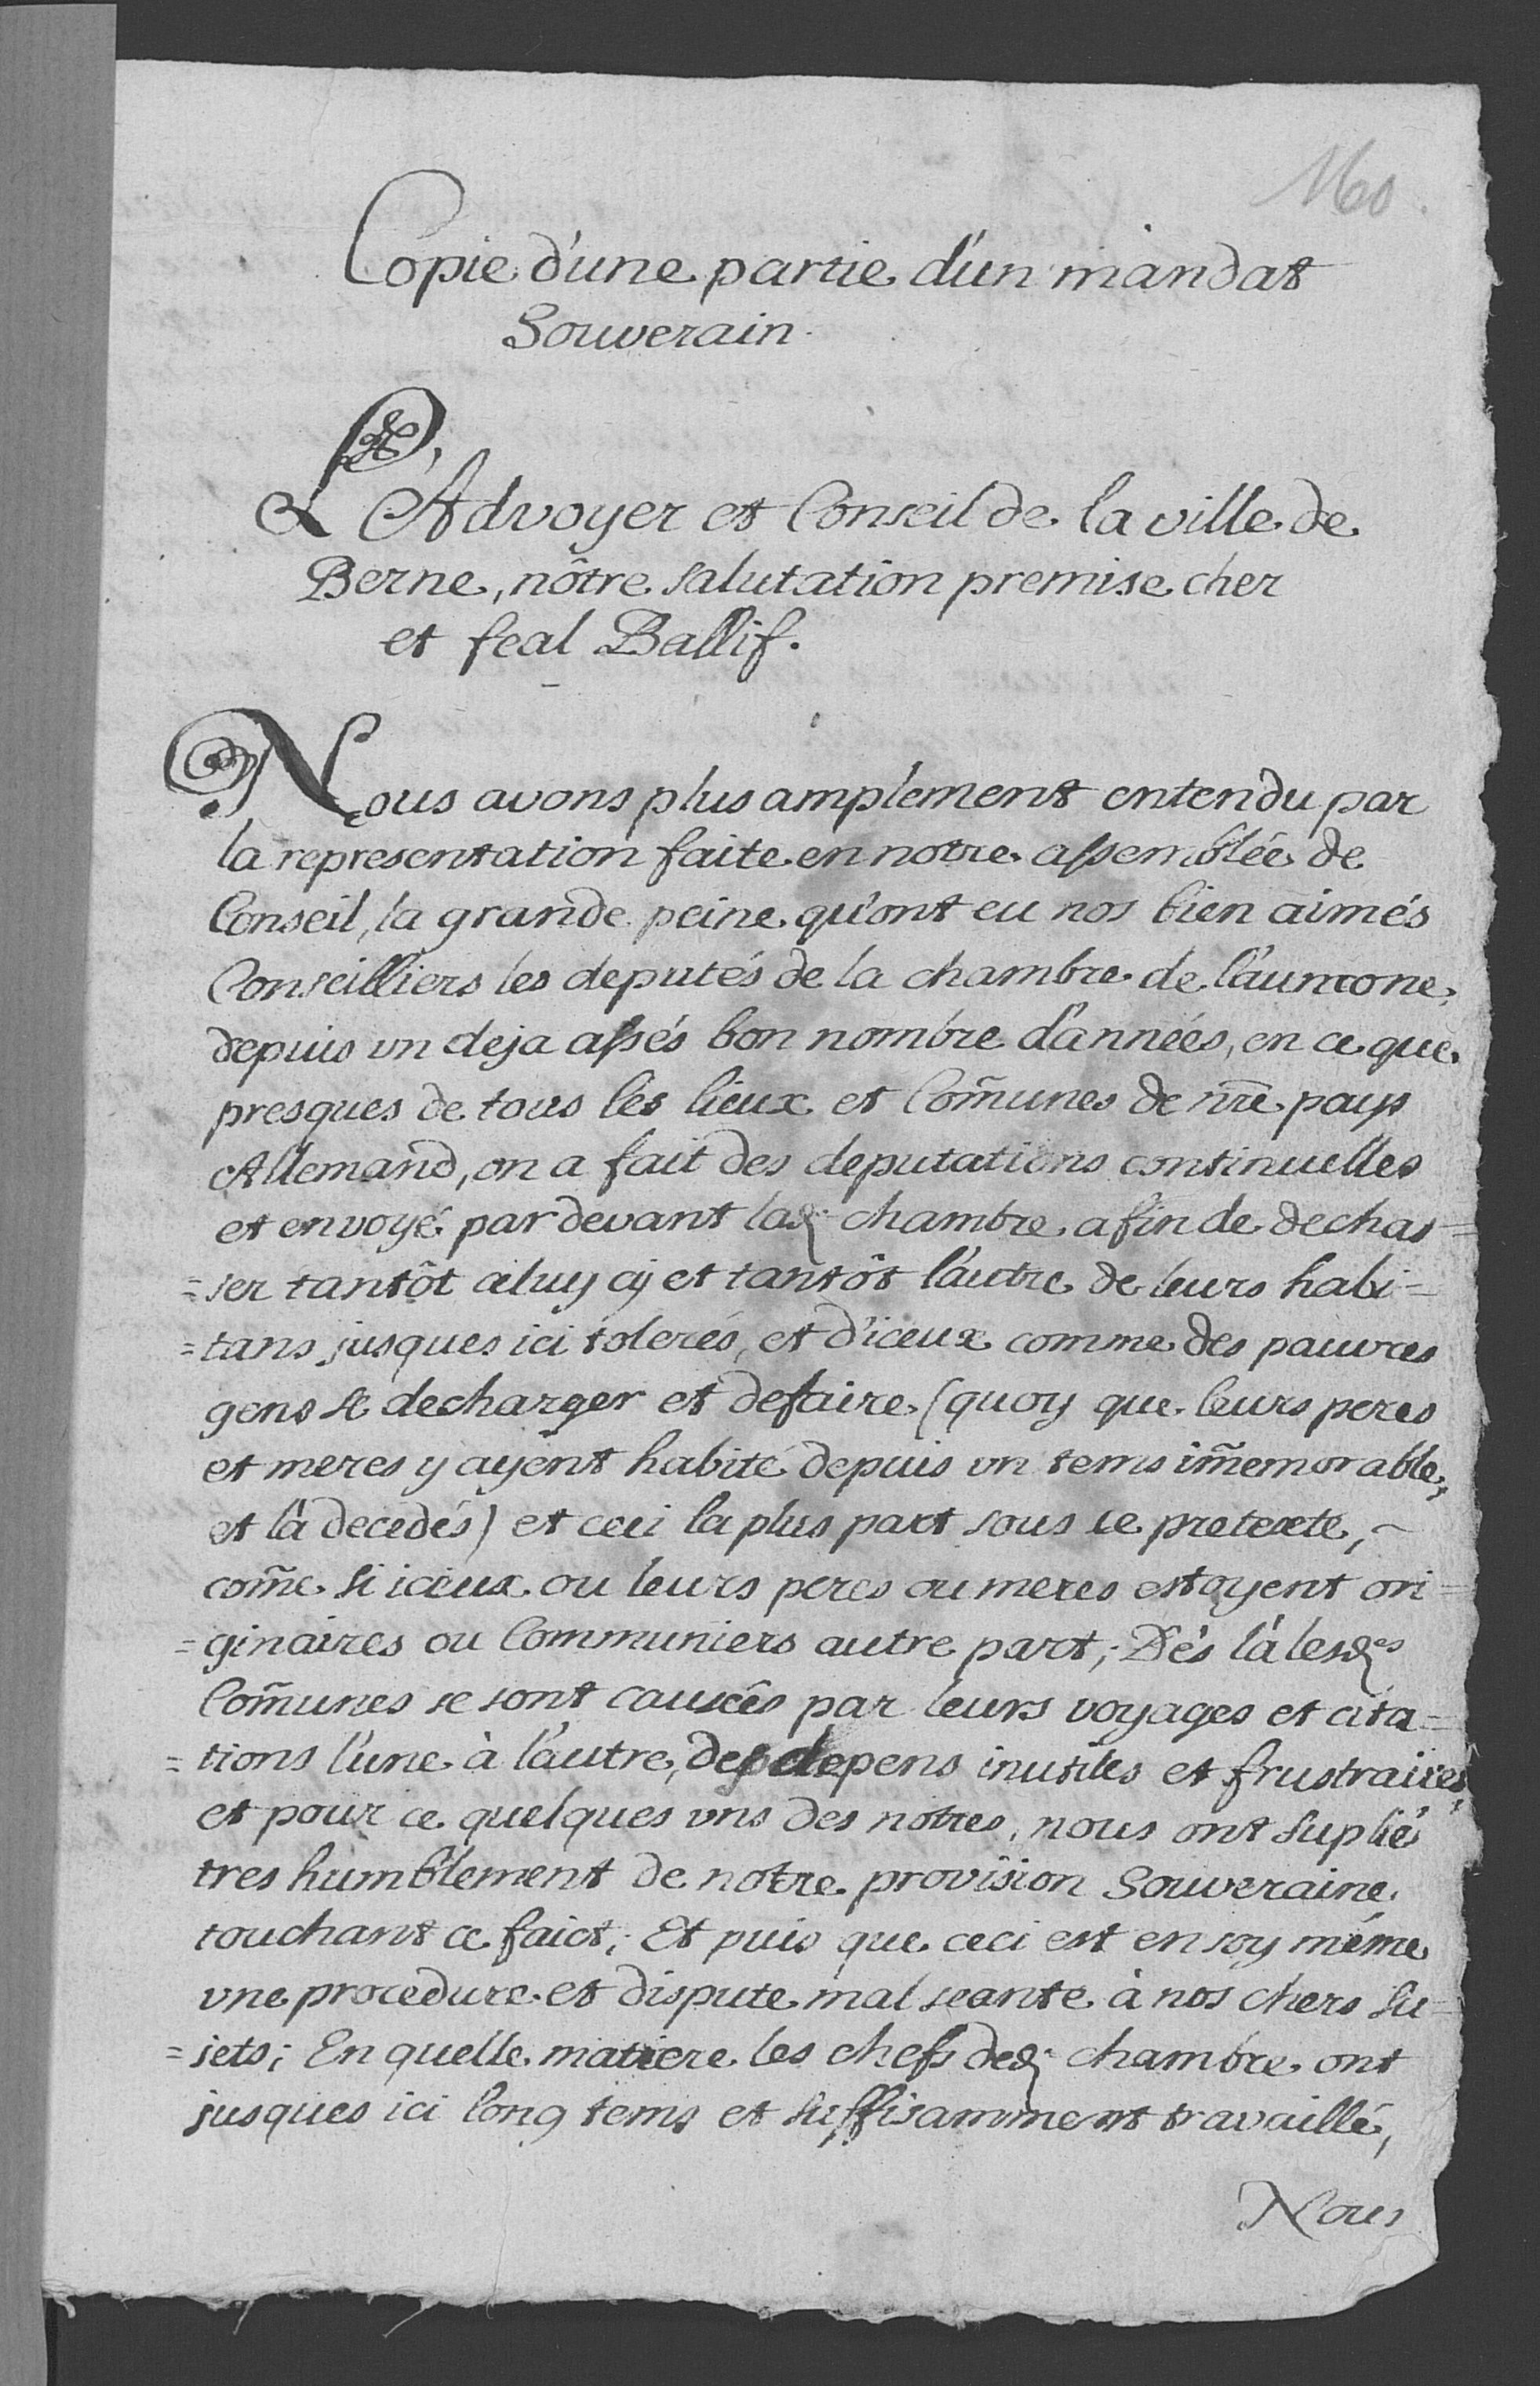 1160
Copie d'une partie d'un mandat
Souverain.
L'Advoyer et Conseil de la ville de
Berne, nôtre salutation premise cher
et feal Ballif.
Nous avons plus amplement entendu par
la representation faite en notre assemblée de
Conseil, la grande peine qu'ont eu nos bien aimés
Conseilliers les deputés de la chambre de l'aumone,
depuis un deja assés bon nombre d'années, en ce que
presques de tous les lieux et Com̃unes de nr̃e pays
Allemand, on a fait des deputations continuelles
et envoyé par devant lad: chambre afin de dechas=
=ser tantôt celuy cÿ et tantôt l'autre de leurs habi=
=tans jusques ici tolerés, et d'iceux comme des pauvres
gens se decharger et defaire (quoy que leurs peres
et meres y ayent habité depuis vn tems im̃emorable,
et là decedés) et ceci la plus part sous ce pretexte,
com̃e si iceux ou leurs peres ou meres estoyent ori=
=ginaires ou Communiers autre part; Dés là lesdes
Com̃unes se sont causées par leurs voyages et cita=
=tions l'une à l'autre, des depens inutiles et frustraires,
et pour ce quelques vns des notres, nous ont suplié
tres humblement de notre provision Souveraine,
touchant ce faict; Et puis que ceci est en soy même
vne procedure et dispute mal seante à nos chers su=
=jets; En quelle matiere les chefs ded: chambre ont
jusques ici long tems et suffisamment travaillé,
Nous